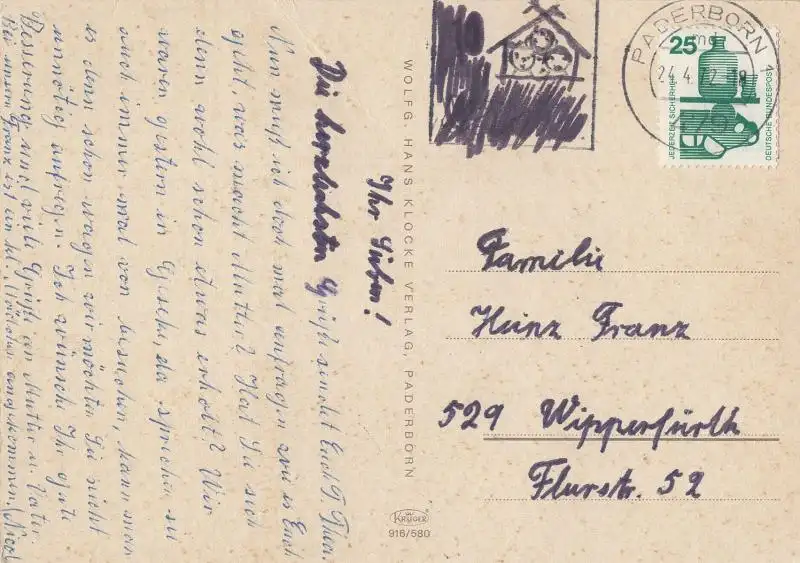 Ihr Lieben!
Die herzlichsten Grüße sendet Euch
Nun muß ich doch mal anfragen wie es Euch
geht, was macht Mutter? Hat Sie sich
denn wohl schon etwas erholt? Wir
waren gestern in Geseke, da sprechen sie
auch immer mal von besuchen, kann man
es denn schon wagen wir möchten Sie nicht
unnötig aufregen. Ich wünsche Ihr gute
Besserung und viele Grüße an Mutter u. Vater.
Bei unserm Franz ist ein kl. Mädchen angekommen,
PADERBORN 1
24.4.72
25
JEDERZEIT SICHERHEIT
DEUTSCHE BUNDESPOST
WOLFG. HANS KLOCKE VERLAG, PADERBORN
KRÜGER
916/580
Familie
Heinz Franz
529 Wipperfürth
Flurstr. 52